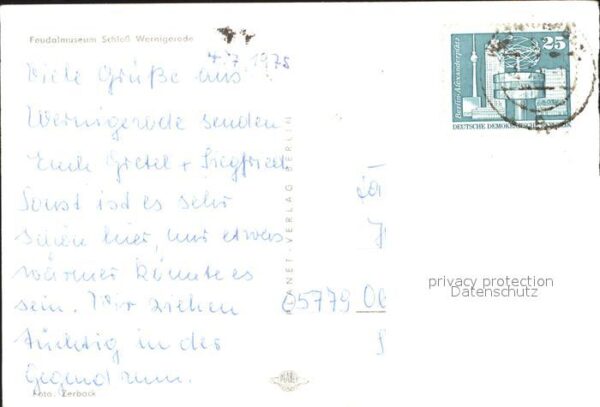 Feudalmuseum Schloß Wernigerode
4.7.1975
Viele Grüße aus
Wernigerode senden
Euch Gretel + Siegfried
Sonst ist es sehr
schön hier, nur etwas
wärmer könnte es
sein. Wir ziehen
tüchtig in der
Gegend rum.
Foto: Zerback
PLANET-VERLAG BERLIN
25
Berlin-Alexanderplatz
DEUTSCHE DEMOKRATISCHE
5779
privacy protection
Datenschutz